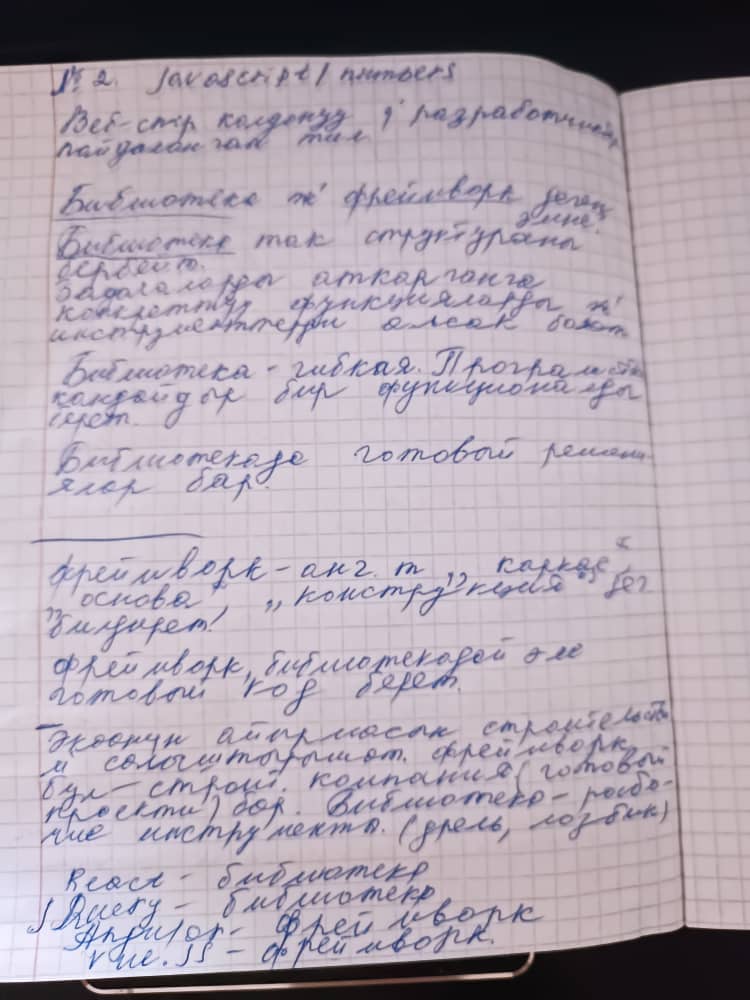 № 2. Javascript / numbers
Веб-стр колдонуу, разработчиктер
пайдаланган тил.
Библиотека ж' фреймворк деген
эмне.
Библиотека так структураны
бербейт.
Задачаларды аткарганга
функцияларды ж'
инструменттерди алсак болот
Библиотека - гибкая. Программист
кандайдыр бир функционалды
Библиотекада готовый решени-
ялар бар.
Фреймворк - анг. т „каркас“,
„основа“, „конструкция“ дег
билдирет.
Фреймворк, библиотекадай эле
готовый код берет.
Экөөнүн айырмасын строительство
м салыштырышат. Фреймворк
бул - строит. компания (готовый
проекти) бар. Библиотека - рабо-
чие инструменты. (дрель, лобзик)
React - библиотека
JQuery - библиотека
Angular - фреймворк
Vue.JS - фреймворк.